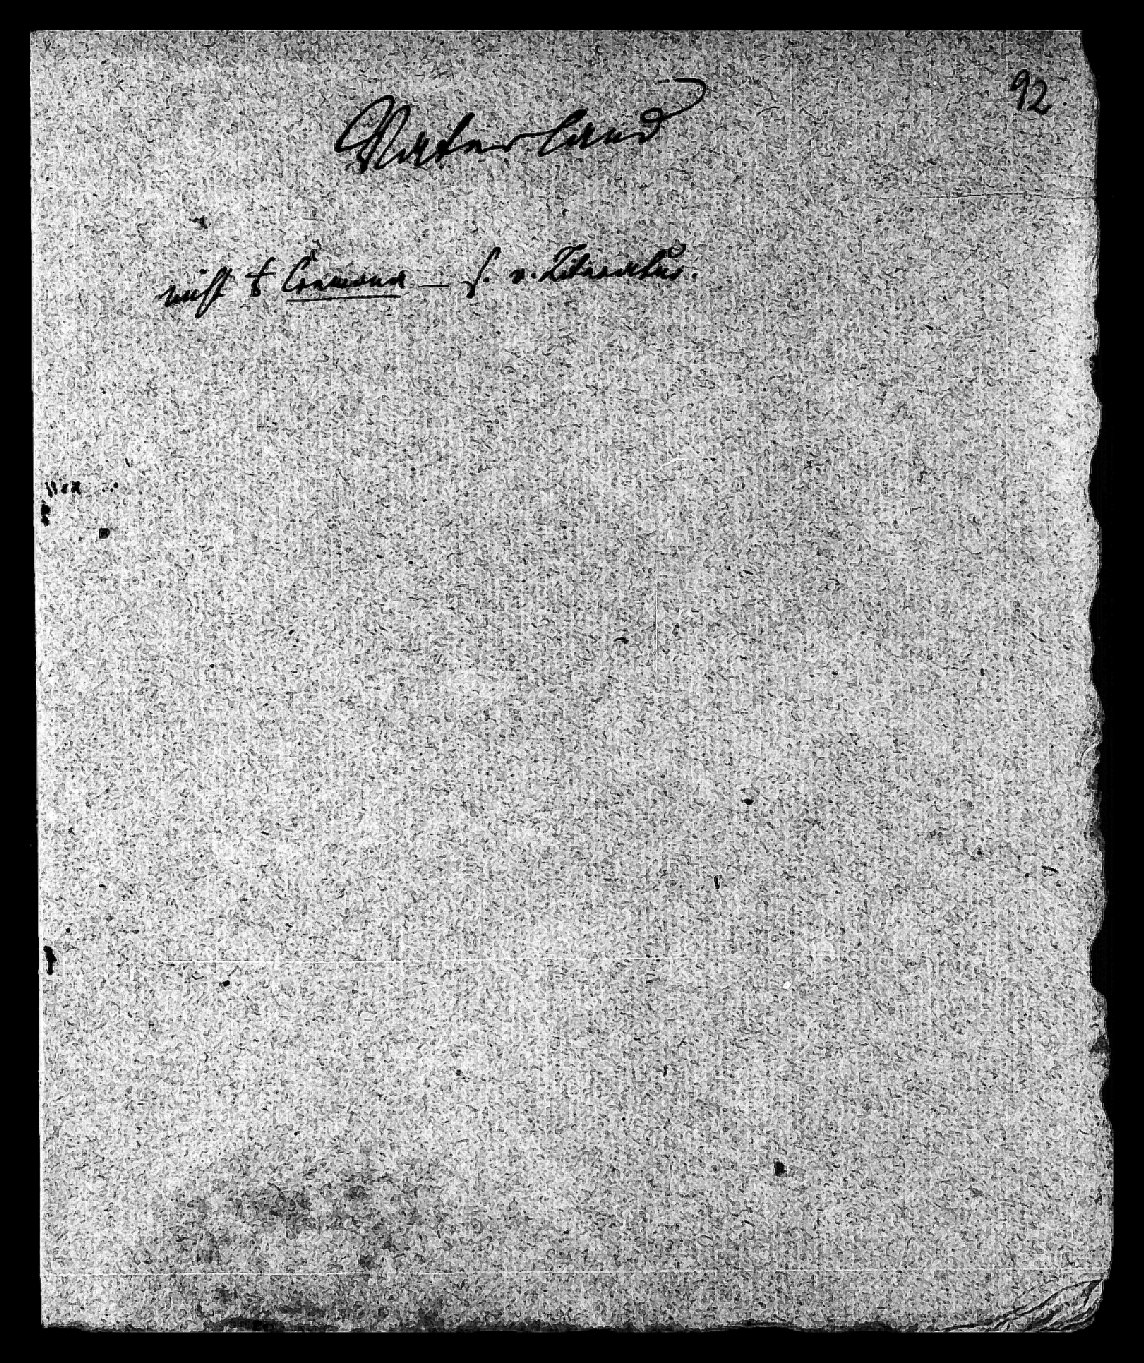 92
Vaterland
nicht Cremona — s. v. Literatur.